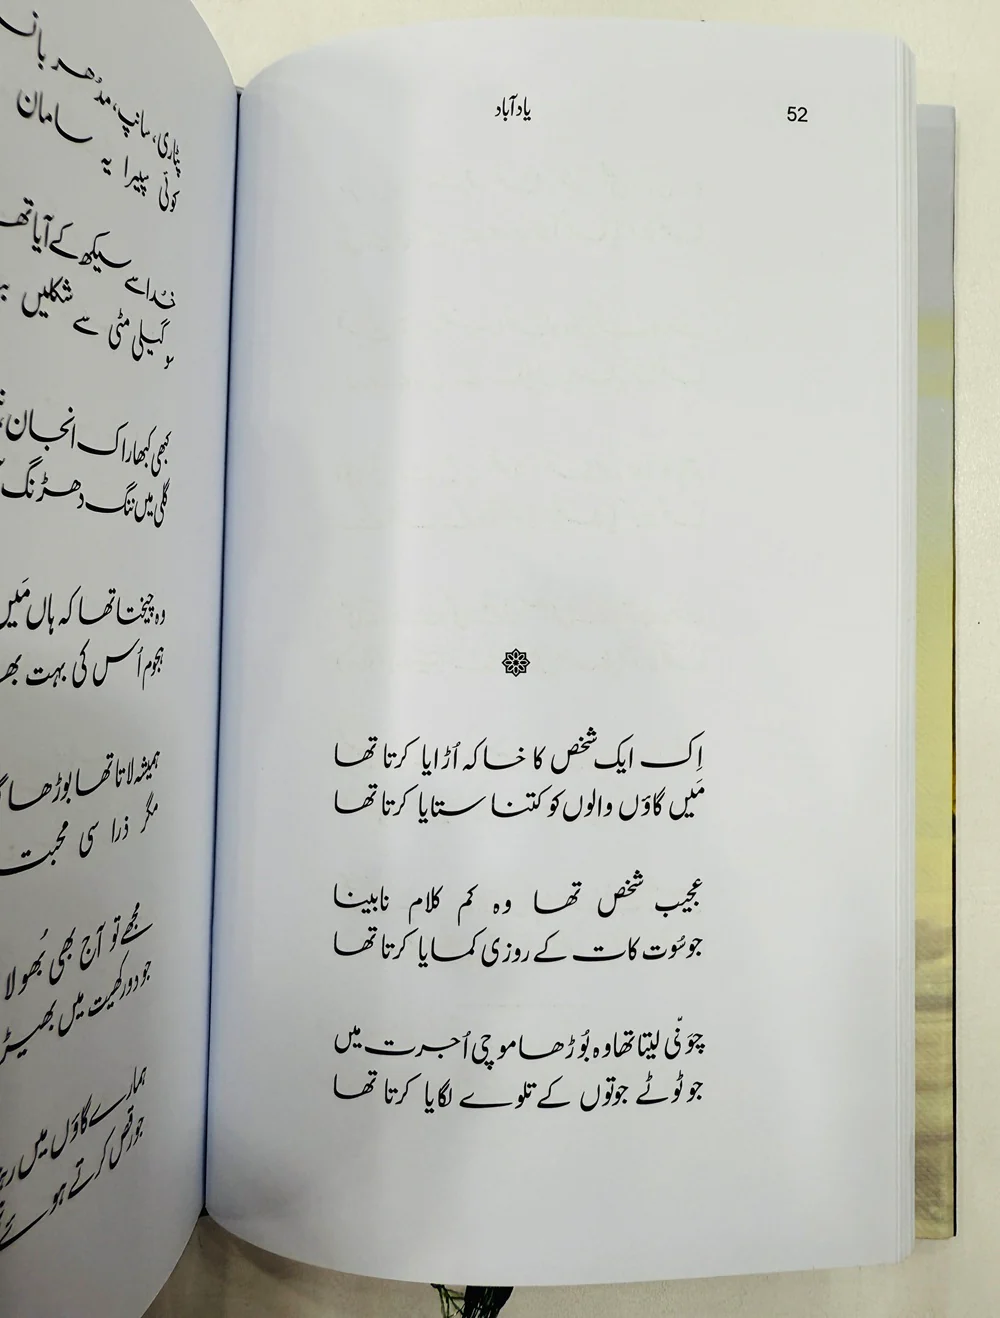 یاد آباد
52
اِک ایک شخص کا خاکہ اُڑایا کرتا تھا
مَیں گاؤں والوں کو کتنا ستایا کرتا تھا
عجیب شخص تھا وہ کم کلام نابینا
جو سُوت کات کے روزی کمایا کرتا تھا
چوَنّی لیتا تھا وہ بُوڑھا موچی اُجرت میں
جو ٹوٹے جوتوں کے تلوے لگایا کرتا تھا
پٹاری، سانپ، مدُھر
کوئی سپیرا یہ سامان
خُدا سے سیکھ کے آیا تھا
گیلی مٹی سے شکلیں
کبھی کبھار اک انجان
گلی میں ننگ دھڑنگ
وہ چیختا تھا کہ ہاں مَیں
ہجوم اُس کی بہت
ہمیشہ لاتا تھا بوڑھا
مگر ذرا سی محبت
مُجھے تو آج بھی بُھولا
جو دور کھیت میں
ہمارے گاؤں میں
جو رقص کرتے ہوئے